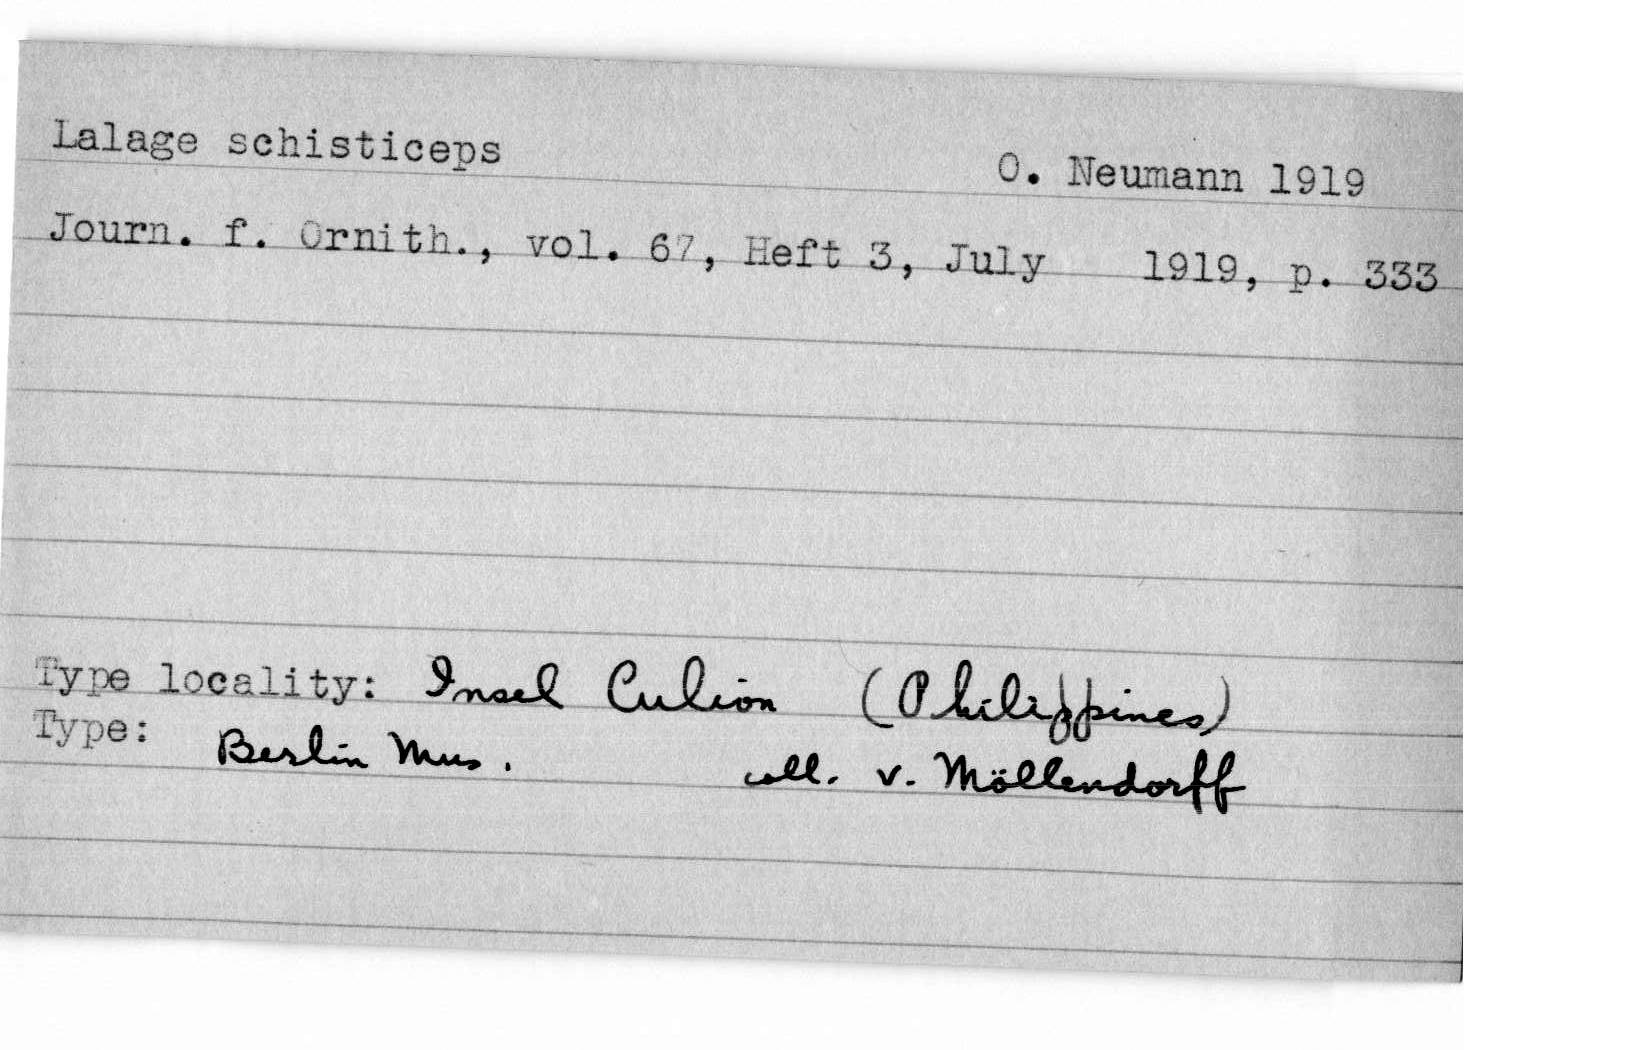 Lalage schisticeps O. Neumann 1919
Journ. f. Ornith., vol. 67, Heft 3, July 1919, p. 333
Type locality: Insel Culion (Philippines)
Type: Berlin Mus. coll. v. Möllendorff